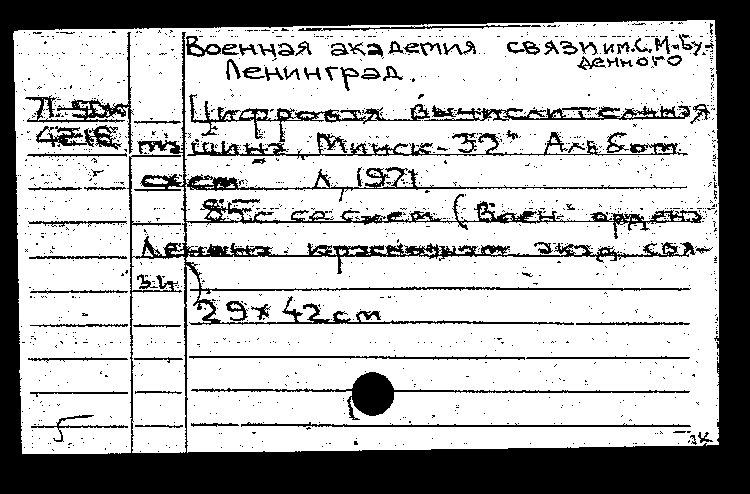 Военная академия связи им. С. М. Бу-
денного
Ленинград.
Цифровая вычислительная
машина "Минск-32" Альбом
схем Л, 1971.
85с со схем (Воен. ордена
Ленина краснознам акад. свя-
зи)
29 x 42 cm
5